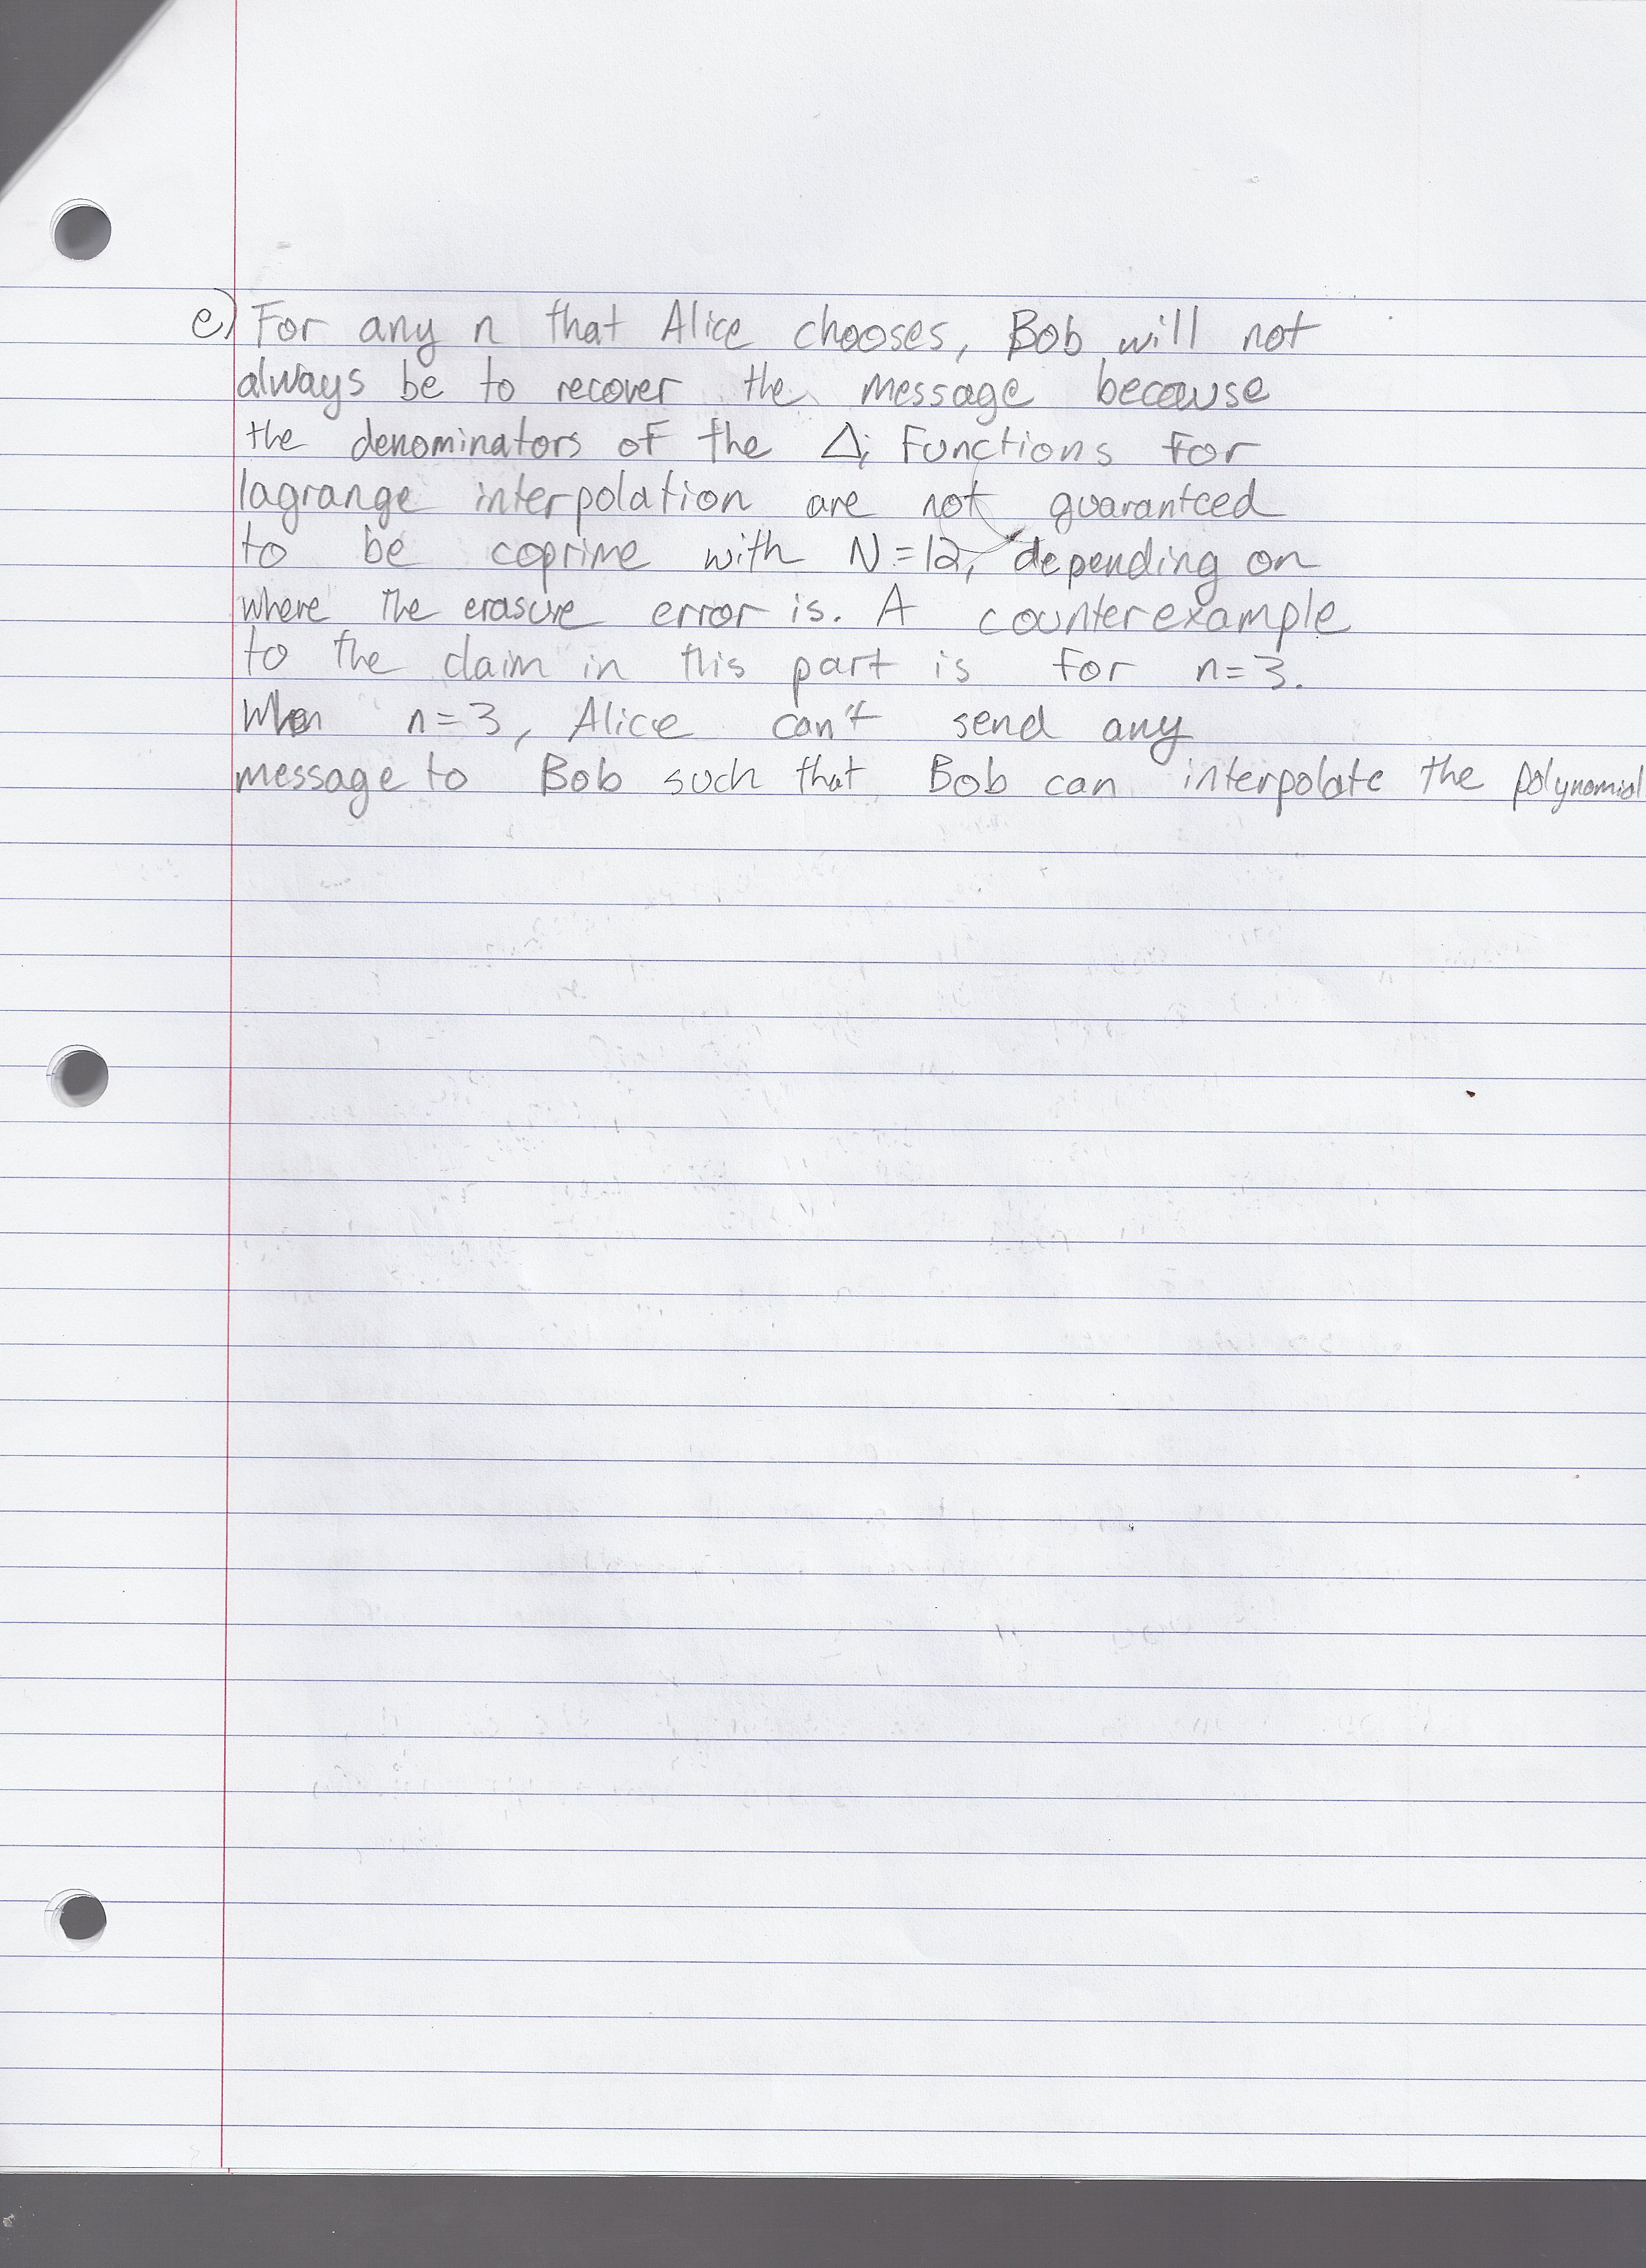 e) For any n that Alice chooses, Bob will not
always be to recover the message because
the denominators of the Δi functions for
lagrange interpolation are not guaranteed
to be coprime with N=12, depending on
where the erasure error is. A counterexample
to the claim in this part is for n=3.
When n=3, Alice can't send any
message to Bob such that Bob can interpolate the polynomial